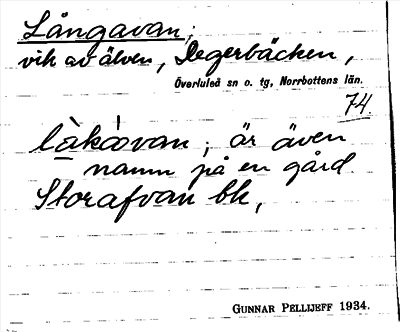 Långavan;
vik av älven, Degerbäcken,
Överluleå sn o. tg, Norrbottens län.
74.
; är även
namn på en gård
Storafvan bk,
GUNNAR PELLIJEFF 1934.